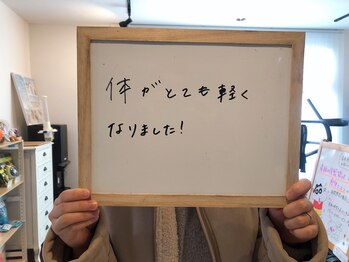 体がとても軽く
なりました!